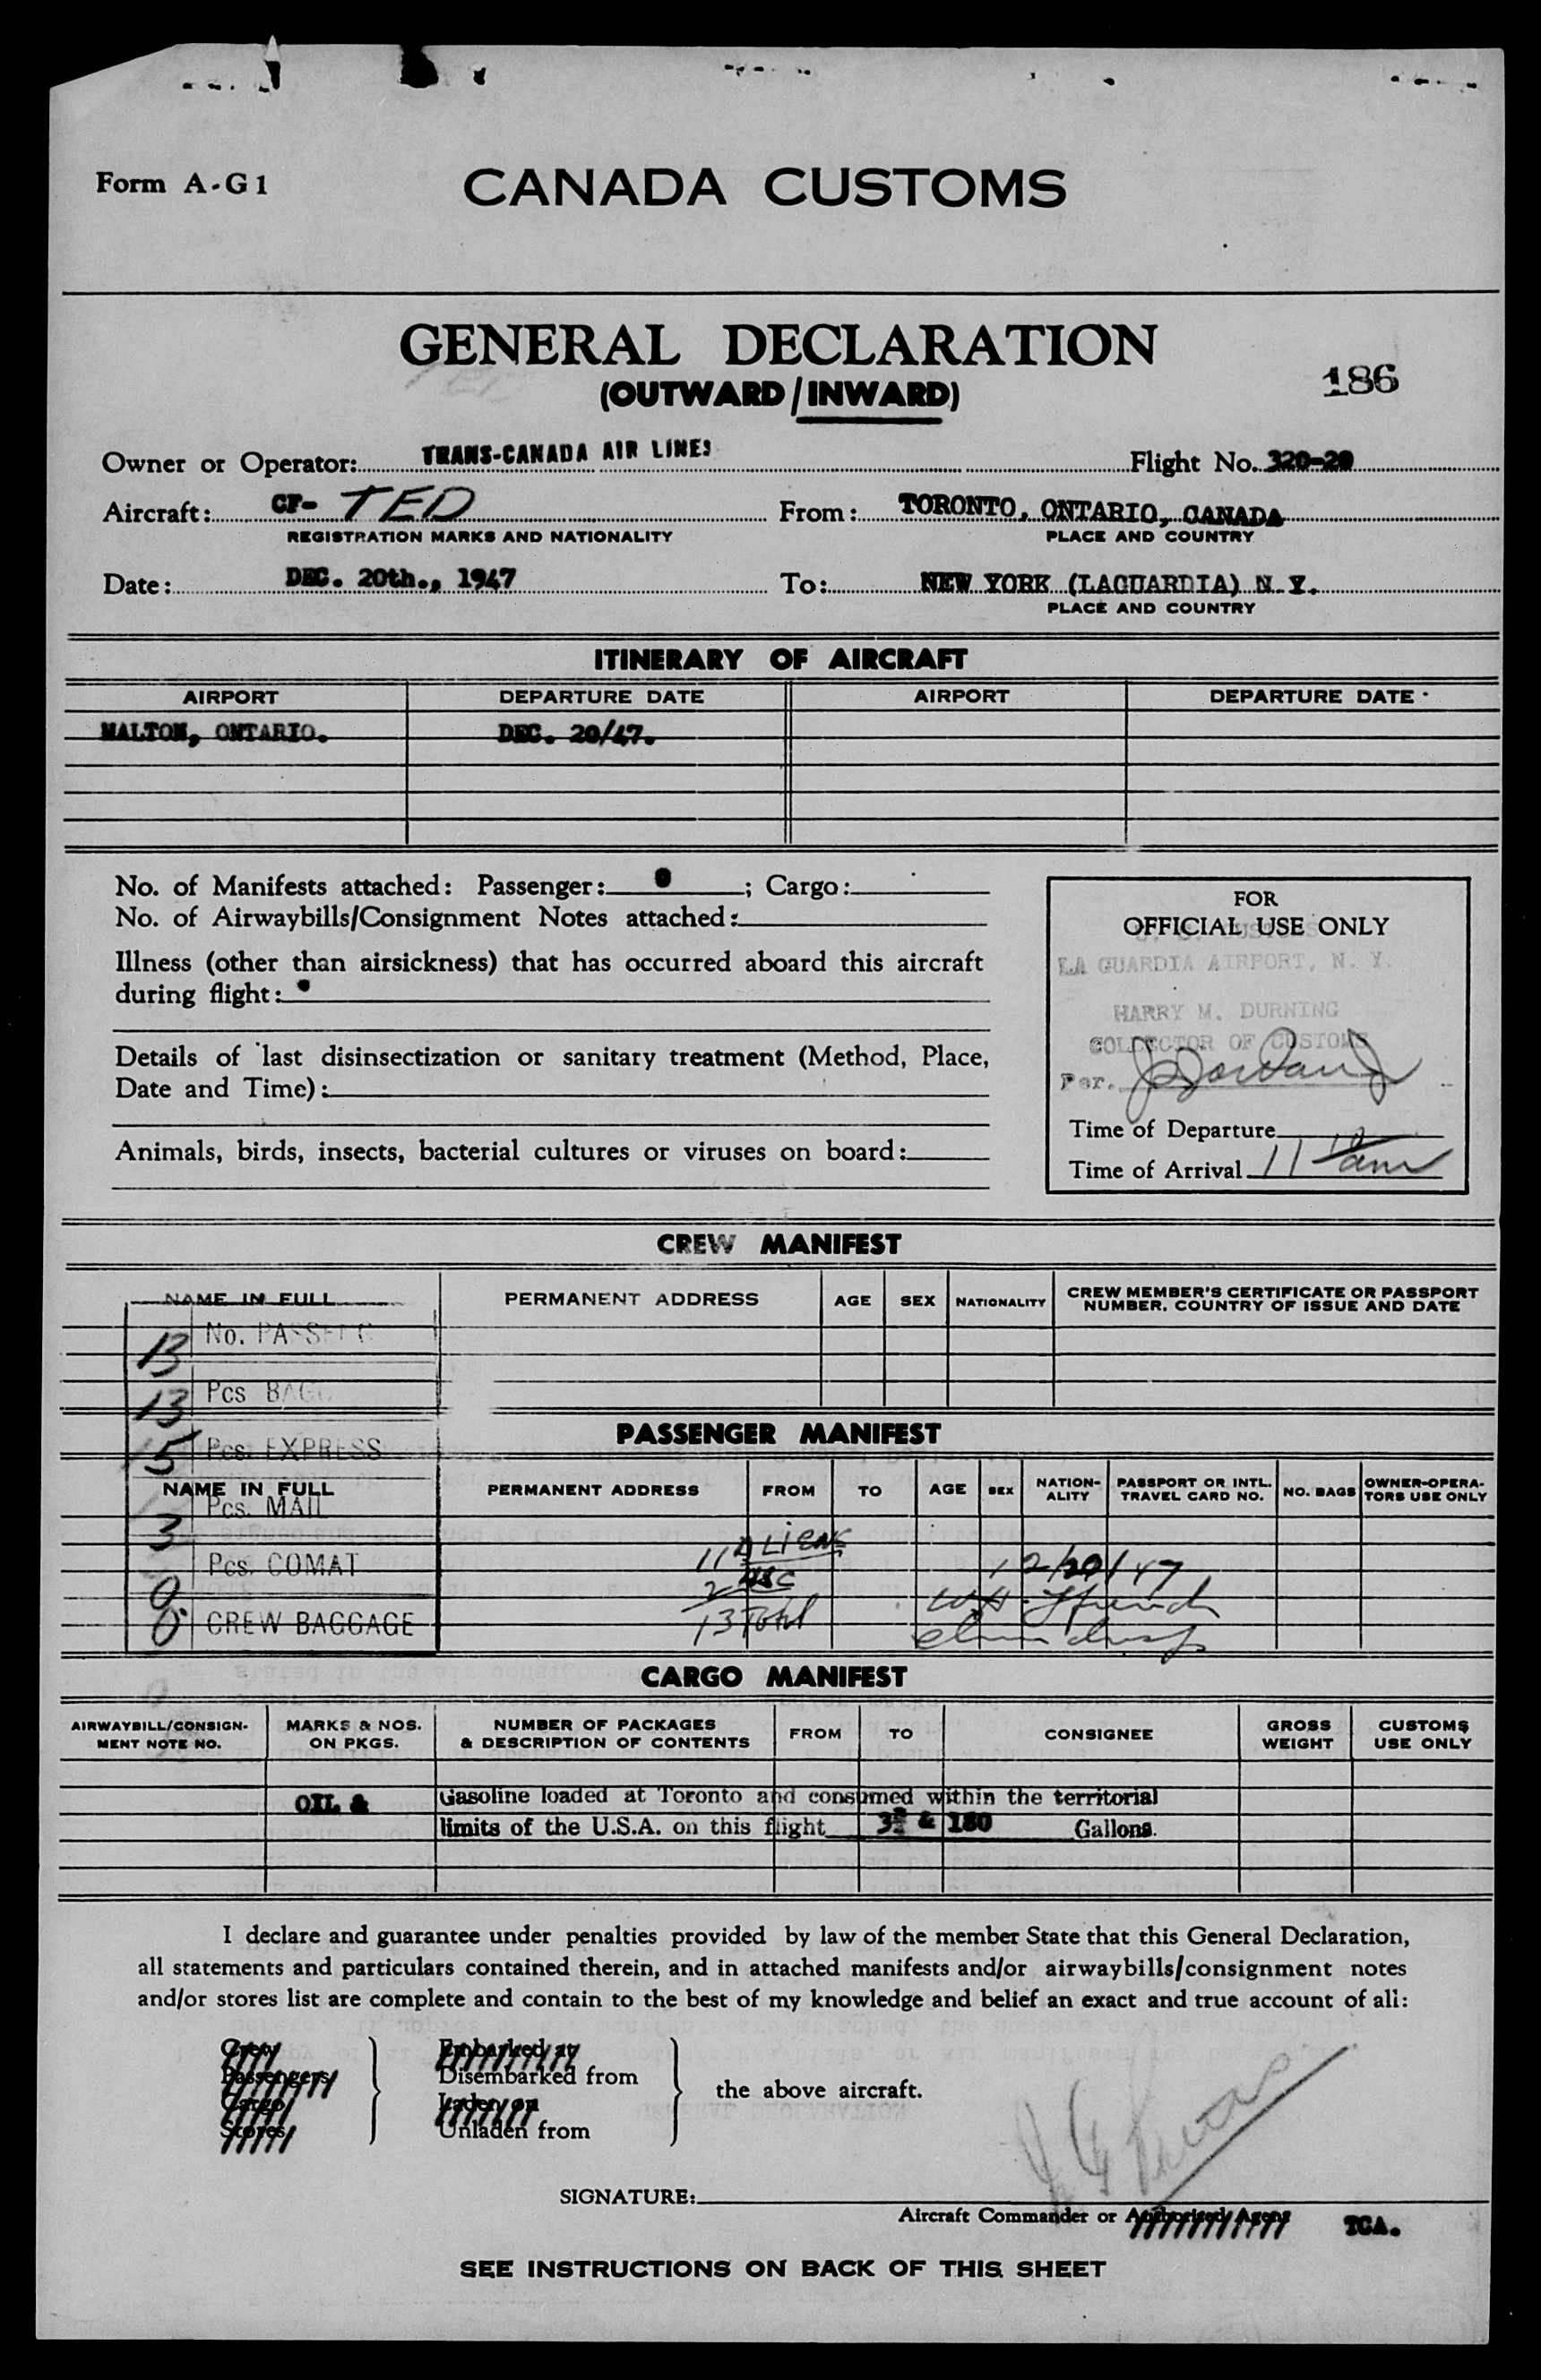 Form A-G1
CANADA CUSTOMS
GENERAL DECLARATION
(OUTWARD/INWARD)
186
Owner or Operator: TRANS-CANADA AIR LINES Flight No. 320-20
Aircraft: CF- TED From: TORONTO, ONTARIO, CANADA
REGISTRATION MARKS AND NATIONALITY PLACE AND COUNTRY
Date: DEC. 20th., 1947 To: NEW YORK (LAGUARDIA) N.Y.
PLACE AND COUNTRY
ITINERARY OF AIRCRAFT
AIRPORT DEPARTURE DATE AIRPORT DEPARTURE DATE
MALTON, ONTARIO. DEC. 20/47.
No. of Manifests attached: Passenger: 0 ; Cargo:
No. of Airwaybills/Consignment Notes attached:
Illness (other than airsickness) that has occurred aboard this aircraft
during flight:
Details of last disinsectization or sanitary treatment (Method, Place,
Date and Time):
Animals, birds, insects, bacterial cultures or viruses on board:
FOR
OFFICIAL USE ONLY
LA GUARDIA AIRPORT, N. Y.
HARRY M. DURNING
COLLECTOR OF CUSTOMS
Per.
Time of Departure
Time of Arrival 11 10 am
CREW MANIFEST
NAME IN FULL PERMANENT ADDRESS AGE SEX NATIONALITY CREW MEMBER'S CERTIFICATE OR PASSPORT
NUMBER, COUNTRY OF ISSUE AND DATE
13 No. PASSENG
13 Pcs BAGG
PASSENGER MANIFEST
15 Pcs. EXPRESS
NAME IN FULL PERMANENT ADDRESS FROM TO AGE SEX NATION-
ALITY PASSPORT OR INTL.
TRAVEL CARD NO. NO. BAGS OWNER-OPERA-
TORS USE ONLY
3 Pcs. MAIL
11 Aliens
0 Pcs. COMAT
2 USC
12/20/47
0 CREW BAGGAGE
13 Total
CARGO MANIFEST
AIRWAYBILL/CONSIGN-
MENT NOTE NO. MARKS & NOS.
ON PKGS. NUMBER OF PACKAGES
& DESCRIPTION OF CONTENTS FROM TO CONSIGNEE GROSS
WEIGHT CUSTOMS
USE ONLY
OIL & Gasoline loaded at Toronto and consumed within the territorial
limits of the U.S.A. on this flight & 180 Gallons.
I declare and guarantee under penalties provided by law of the member State that this General Declaration,
all statements and particulars contained therein, and in attached manifests and/or airwaybills/consignment notes
and/or stores list are complete and contain to the best of my knowledge and belief an exact and true account of all:
Crew Embarked at
Passengers Disembarked from
Cargo Laden on
Stores Unladen from
the above aircraft.
SIGNATURE:
Aircraft Commander or Authorised Agent TCA.
SEE INSTRUCTIONS ON BACK OF THIS SHEET